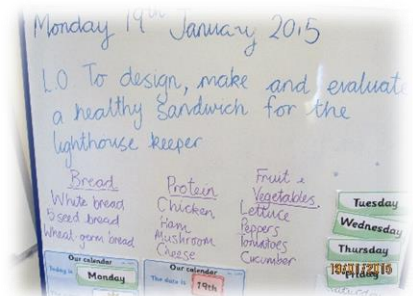 Monday 19th January 2015
LO To design, make and evaluate
a healthy sandwich for the
lighthouse keeper
Bread
White bread
5 seed bread
Wheat-germ bread
Protein
Chicken
Ham
Mushroom
Cheese
Fruit &
Vegetables
Lettuce
Peppers
Tomatoes
Cucumber
Our calendar
Today is
Monday
Our calendar
The date is
19th
Tuesday
Wednesday
Thursday
Friday
19/01/2015